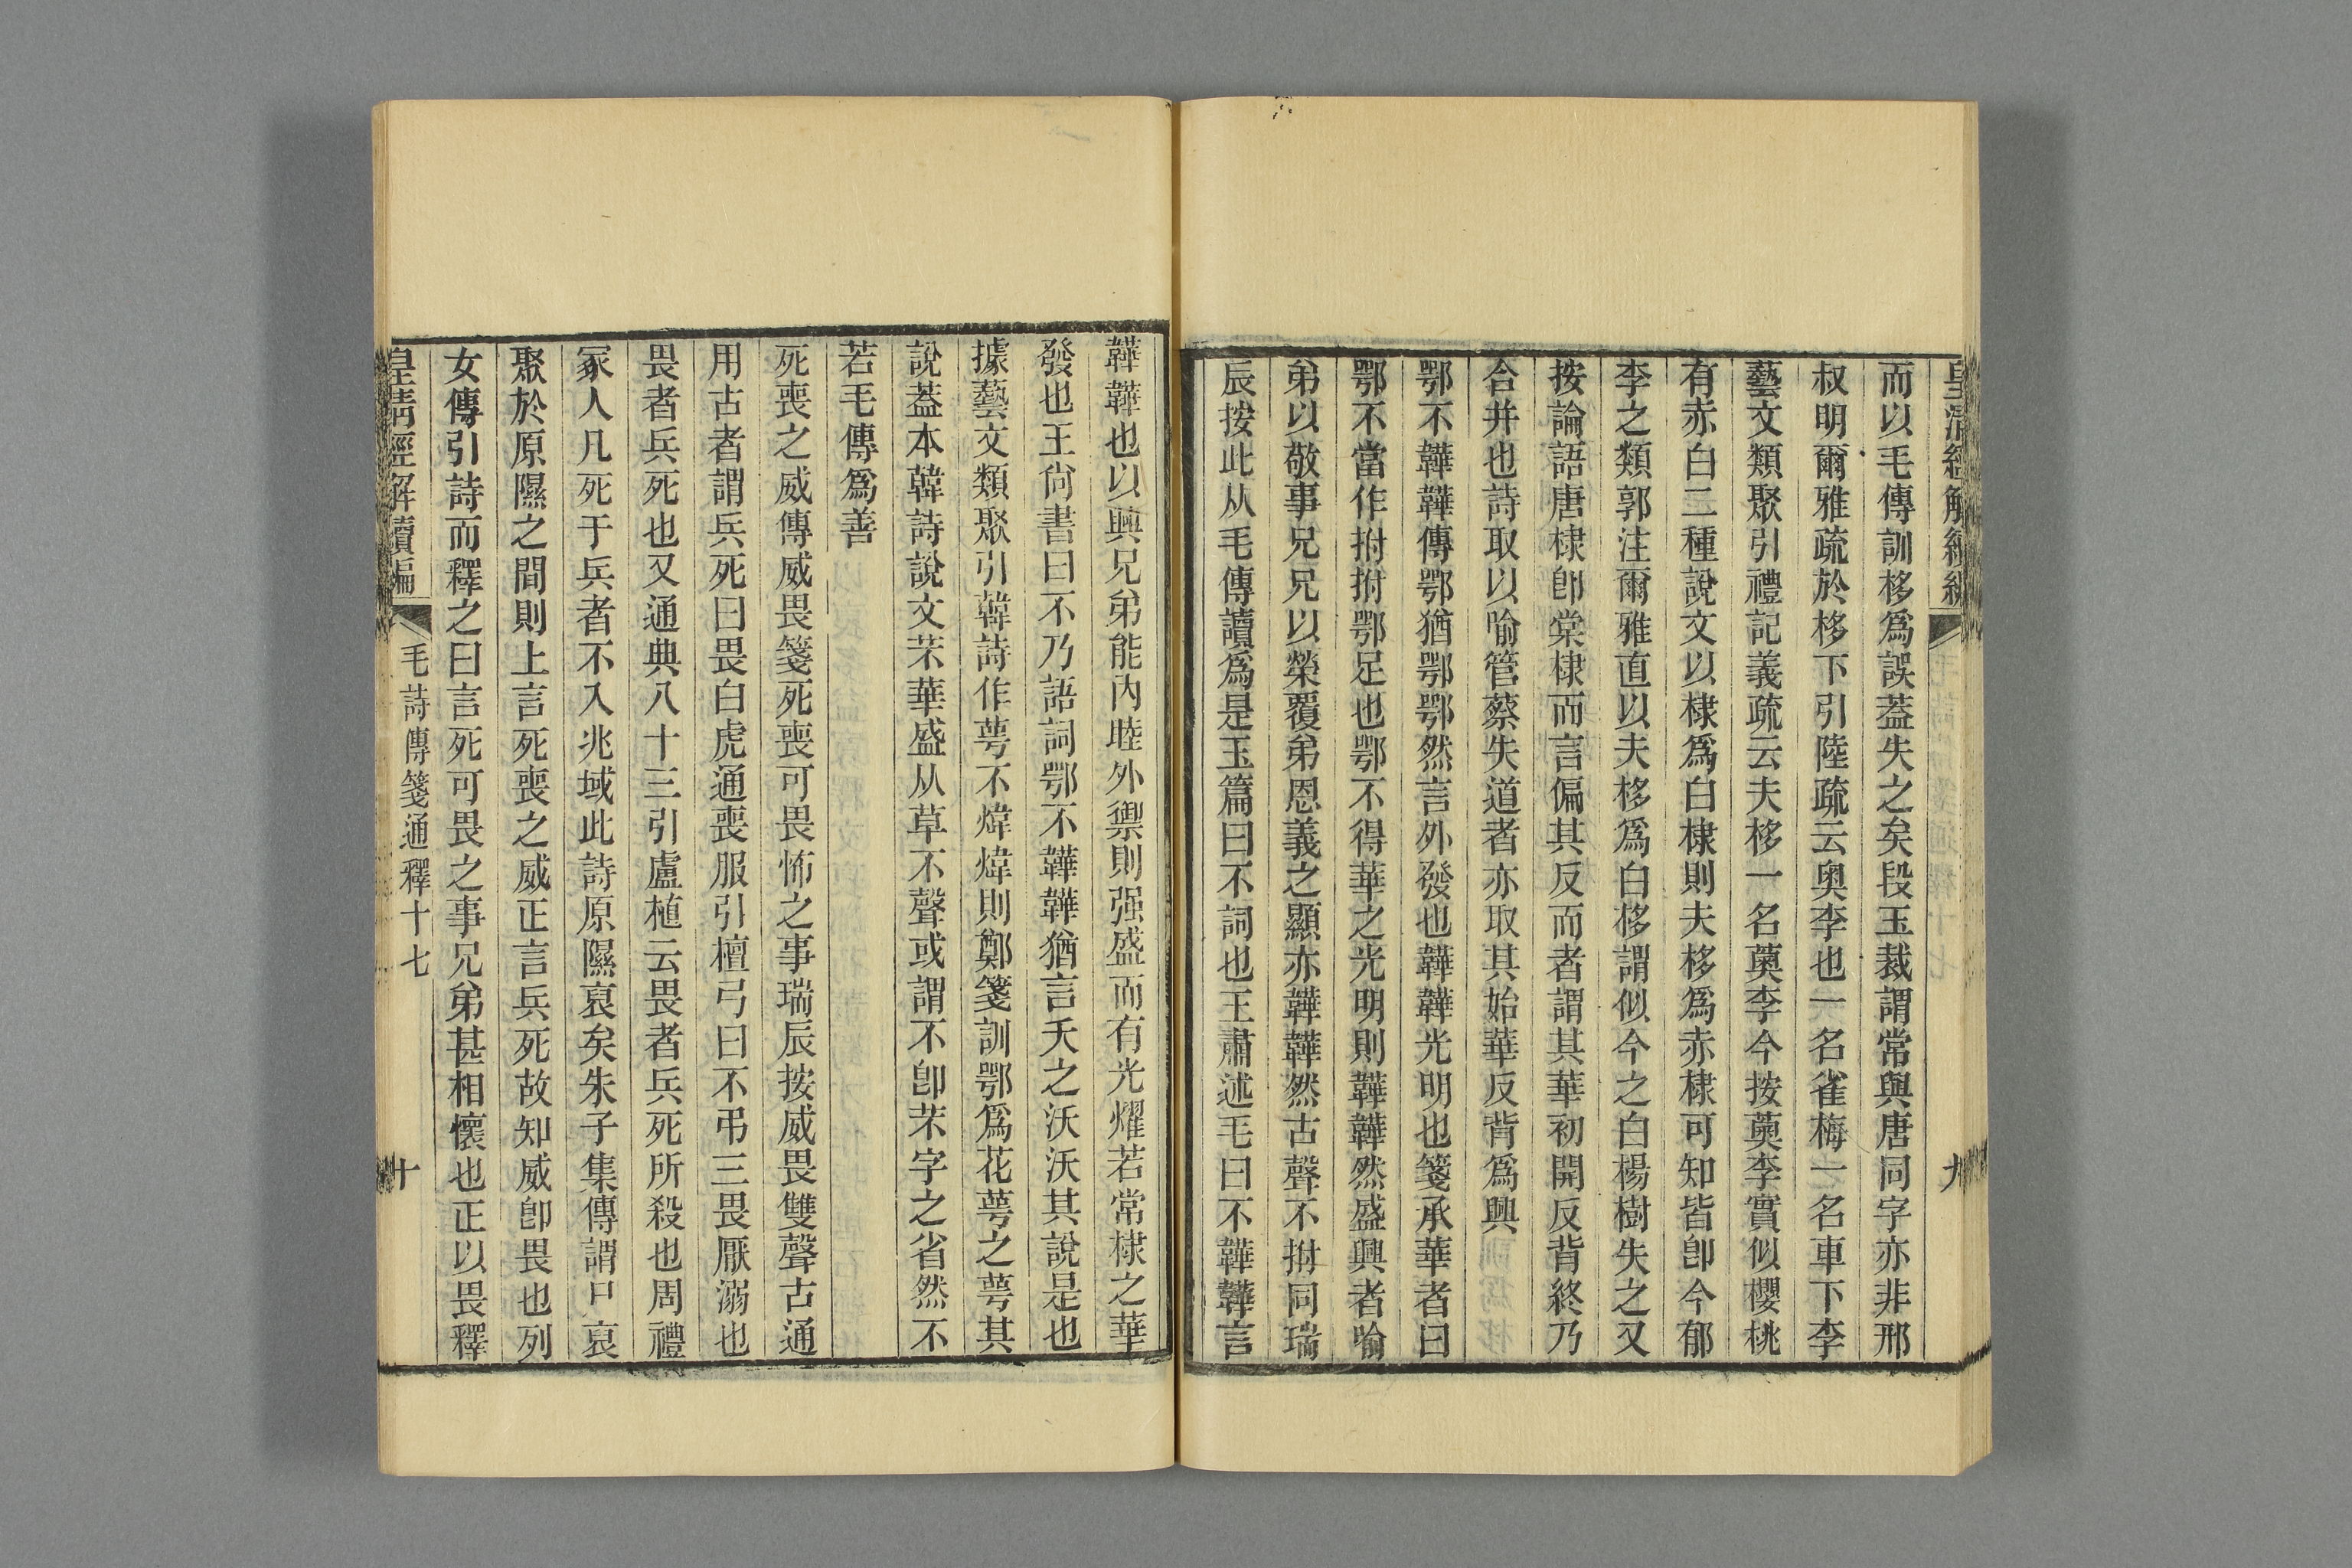 皇清經解續編
九
而以毛傳訓栘爲誤蓋失之矣段玉裁謂常與唐同字亦非邢
叔明爾雅疏於栘下引陸疏云奥李也一名雀梅一名車下李
藝文類聚引禮記義疏云夫栘一名薁李今按薁李實似櫻桃
有赤白二種說文以棣爲白棣則夫栘爲赤棣可知皆卽今郁
李之類郭注爾雅直以夫栘爲白栘謂似今之白楊樹失之又
按論語唐棣卽棠棣而言偏其反而者謂其華初開反背終乃
合并也詩取以喻管蔡失道者亦取其始華反背爲興
鄂不韡韡傳鄂猶鄂鄂然言外發也韡韡光明也箋承華者曰
鄂不當作拊拊鄂足也鄂不得華之光明則韡韡然盛興者喻
弟以敬事兄兄以榮覆弟恩義之顯亦韡韡然古聲不拊同瑞
辰按此从毛傳讀爲是玉篇曰不詞也王肅述毛曰不韡韡言
韡韡也以興兄弟能內睦外禦則强盛而有光耀若常棣之華
發也王尙書曰不乃語詞鄂不韡韡猶言夭之沃沃其說是也
據藝文類聚引韓詩作萼不煒煒則鄭箋訓鄂爲花萼之萼其
說蓋本韓詩說文芣華盛从草不聲或謂不卽芣字之省然不
若毛傳爲善
死喪之威傳威畏箋死喪可畏怖之事瑞辰按威畏雙聲古通
用古者謂兵死曰畏白虎通喪服引檀弓曰不弔三畏厭溺也
畏者兵死也又通典八十三引盧植云畏者兵死所殺也周禮
冢人凡死于兵者不入兆域此詩原隰裒矣朱子集傳謂尸裒
聚於原隰之間則上言死喪之威正言兵死故知威卽畏也列
女傳引詩而釋之曰言死可畏之事兄弟甚相懷也正以畏釋
皇淸經解續編
毛詩傳箋通釋十七
十